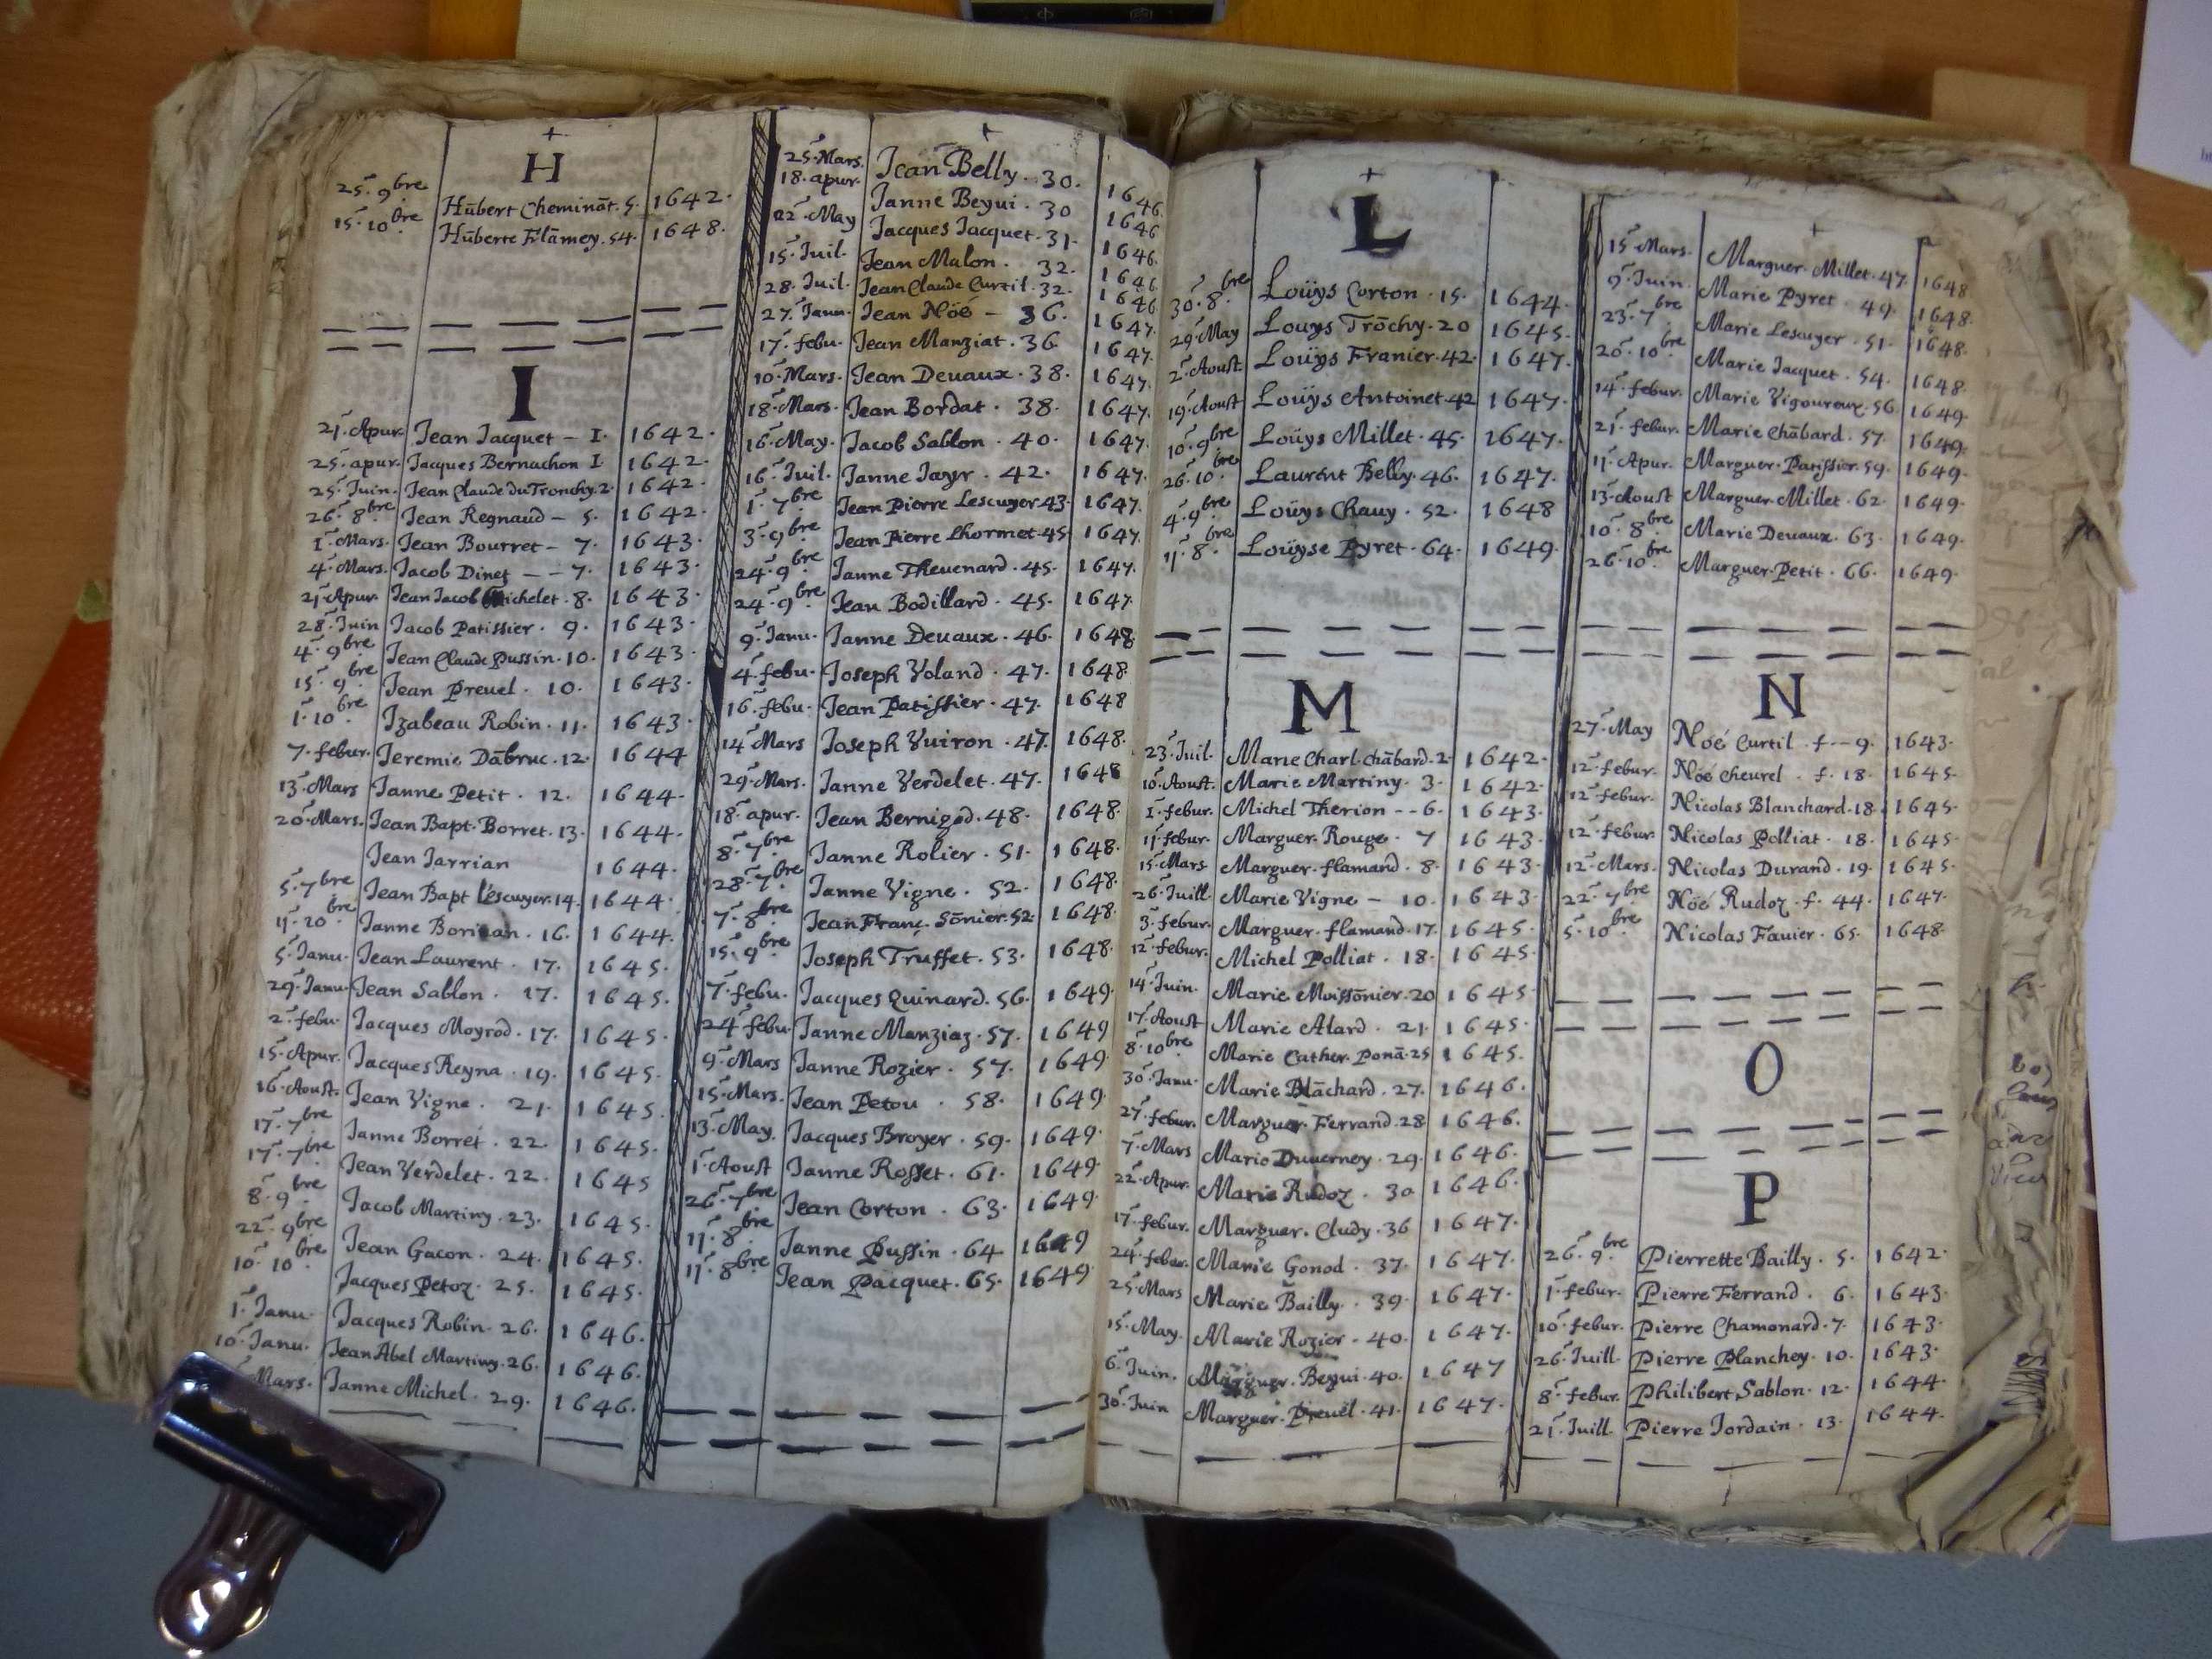 H
25. 9bre Hūbert Chemināt. 5. 1642.
15. 10bre Hūberte Flāmey. 54. 1648.
I
21. Apur. Jean Jacquet - I. 1642.
25. apur. Jacques Bernachon I 1642.
25. Juin. Jean Claude du Tronchy. 2. 1642.
26. 8bre Jean Regnaud - 5. 1642.
1. Mars. Jean Bourret - 7. 1643.
4. Mars. Jacob Dinet - - 7. 1643.
21. Apur. Jean Jacob Michelet. 8. 1643.
28. Juin Jacob Patissier. 9. 1643.
4. 9bre Jean Claude Pussin. 10. 1643.
15. 9bre Jean Preuel. 10. 1643.
1. 10bre Izabeau Robin. 11. 1643.
7. febur. Jeremie Dābruc. 12. 1644
13. Mars Janne Petit. 12. 1644.
20. Mars. Jean Bapt. Borret. 13. 1644.
Jean Jarrian 1644.
5. 7bre Jean Bapt Lescuyer. 14. 1644.
11. 10bre Janne 16. 1644.
5. Janu. Jean Laurent. 17. 1645.
29. Janu. Jean Sablon. 17. 1645.
2. febu. Jacques Moyrod. 17. 1645.
15. Apur. Jacques Reyna. 19. 1645.
16. Aoust. Jean Vigne. 21. 1645.
17. 7bre Janne Borret. 22. 1645.
17. 7bre Jean Verdelet. 22. 1645
8. 9bre Jacob Martiny. 23. 1645.
22. 9bre Jean Gacon. 24. 1645.
10. 10bre Jacques Petoz. 25. 1645.
1. Janu. Jacques Robin. 26. 1646.
10. Janu. Jean Abel Martiny. 26. 1646.
Mars. Janne Michel. 29. 1646.
25. Mars. Jean Belly. 30. 1646.
18. apur. Janne Beyui. 30 1646
22. May Jacques Jacquet. 31. 1646.
15. Juil. Jean Malon. 32. 1646
28. Juil. Jean Claude Curtil. 32. 1646
27. Janu. Jean Nöé - 36. 1647.
17. febu. Jean Manziat. 36 1647.
10. Mars. Jean Deuaux. 38. 1647.
18. Mars. Jean Bordat. 38. 1647.
16. May. Jacob Sablon. 40. 1647.
16. Juil. Janne Jayr. 42. 1647.
1. 7bre Jean Pierre Lescuyer. 43. 1647.
3. 9bre Jean Pierre Lhormet. 45. 1647.
24. 9bre Janne Theuenard. 45. 1647.
24. 9bre Jean Bodillard. 45. 1647.
9. Janu. Janne Deuaux. 46. 1648
4. febu. Joseph Voland. 47. 1648.
16. febu. Jean Patissier. 47. 1648
14. Mars Joseph Vuiron. 47. 1648.
29. Mars. Janne Verdelet. 47. 1648
18. apur. Jean Bernigod. 48. 1648.
8. 7bre Janne Rolier. 51. 1648.
28. 7bre Janne Vigne. 52. 1648.
7. 8bre Jean Franç. Sōnier. 52. 1648.
15. 9bre Joseph Truffet. 53. 1648.
7. febu. Jacques Quinard. 56. 1649.
24. febu. Janne Manziaz. 57. 1649
9. Mars Janne Rozier. 57. 1649
15. Mars. Jean Petou. 58. 1649.
13. May. Jacques Broyer. 59. 1649.
1. Aoust Janne Rosset. 61. 1649.
26. 7bre Jean Corton. 63. 1649.
11. 8bre Janne Pussin. 64 1649
11. 8bre Jean Pacquet. 65. 1649
L
30. 8bre Loüys Corton. 15. 1644.
29. May Louys Trōchy. 20 1645.
2. Aoust. Loüys Franier. 42. 1647.
19. Aoust Loüys Antoinet. 42 1647.
10. 9bre Loüys Millet. 45. 1647.
26. 10bre Laurent Belly. 46. 1647.
4. 9bre Loüys Chauy. 52. 1648
11. 8bre Loüyse Pyret. 64. 1649.
M
23. Juil. Marie Charl. Chābard. 2 1642.
10. Aoust. Marie Martiny. 3. 1642.
1. febur. Michel Therion - - 6. 1643.
11. febur. Marguer. Rouge. 7 1643.
15. Mars Marguer. flamand. 8. 1643.
26. Juill. Marie Vigne - 10. 1643.
3. Febur. Marguer. flamand. 17. 1645.
12. febur. Michel Polliat. 18. 1645.
14. Juin. Marie Moissōnier. 20 1645.
17. Aoust Marie Alard. 21. 1645.
8. 10bre Marie Cather. Ponā. 25 1645.
30. Janu. Marie Blāchard. 27. 1646.
27. febur. Marguer. Ferrand. 28 1646.
7. Mars Marie Duuerney. 29. 1646.
22. Apur. Marie Rudoz. 30 1646.
17. febur. Marguer. Cludy. 36 1647.
24. febur. Marie Gonod. 37. 1647.
25. Mars Marie Bailly. 39. 1647.
15. May. Marie Rozier. 40. 1647.
6. Juin. Marguer. Beyui. 40. 1647
30. Juin Marguer. Preuel. 41. 1647.
15. Mars. Marguer. Millet. 47. 1648
9. Juin. Marie Pyret. 49. 1648.
23. 7bre Marie Lescuyer. 51. 1648.
20. 10bre Marie Jacquet. 54. 1648.
14. febur. Marie Vigoureux. 56 1649.
21. febur. Marie Chābard. 57. 1649.
11. Apur. Marguer. Patissier. 59. 1649.
13. Aoust Marguer. Millet. 62. 1649.
10. 8bre Marie Deuaux. 63. 1649.
26. 10bre Marguer. Petit. 66. 1649.
N
27. May Nöé Curtil. f. - - 9. 1643.
12. febur. Nöé Cheurel. f. 18. 1645.
12. febur. Nicolas Blanchard. 18. 1645.
12. febur. Nicolas Polliat. 18. 1645.
12. Mars. Nicolas Durand. 19. 1645.
22. 7bre Nöé Rudoz. f. 44. 1647.
5. 10bre Nicolas Fauier. 65. 1648.
O
P
26. 9bre Pierrette Bailly. 5. 1642.
1. febur. Pierre Ferrand. 6. 1643.
10. febur. Pierre Chamonard. 7. 1643.
26. Juill. Pierre Planchey. 10. 1643.
8. febur. Philibert Sablon. 12. 1644.
21. Juill. Pierre Jordain. 13. 1644.